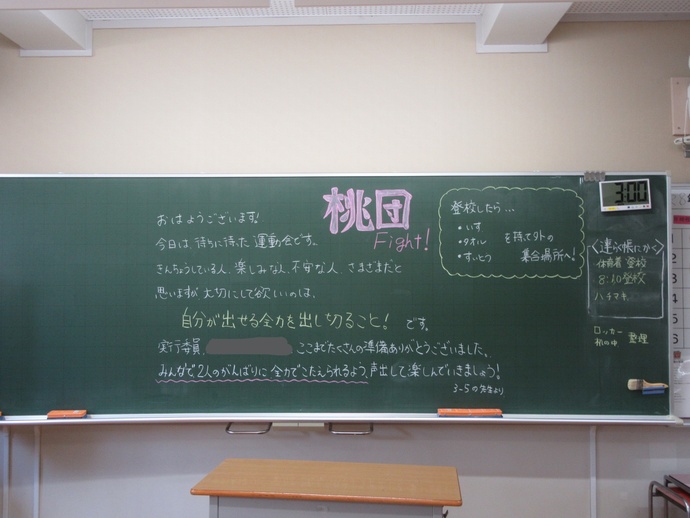 桃団
Fight!
おはようございます!
今日は、待ちに待った運動会です。
きんちょうしている人、楽しみな人、不安な人、さまざまだと
思いますが、大切にして欲しいのは、
自分が出せる全力を出し切ること! です。
実行委員、 、ここまでたくさんの準備ありがとうございました。
みんなで2人のがんばりに全力でこたえられるよう、声出して楽しんでいきましょう!
3-5の先生より
登校したら…
・いす
・タオル を持って外の
・すいとう 集合場所へ!
3:00
<連らく帳にかく>
体育着登校
8:10登校
ハチマキ
ロッカー
机の中 整理
1
2
3
4
6